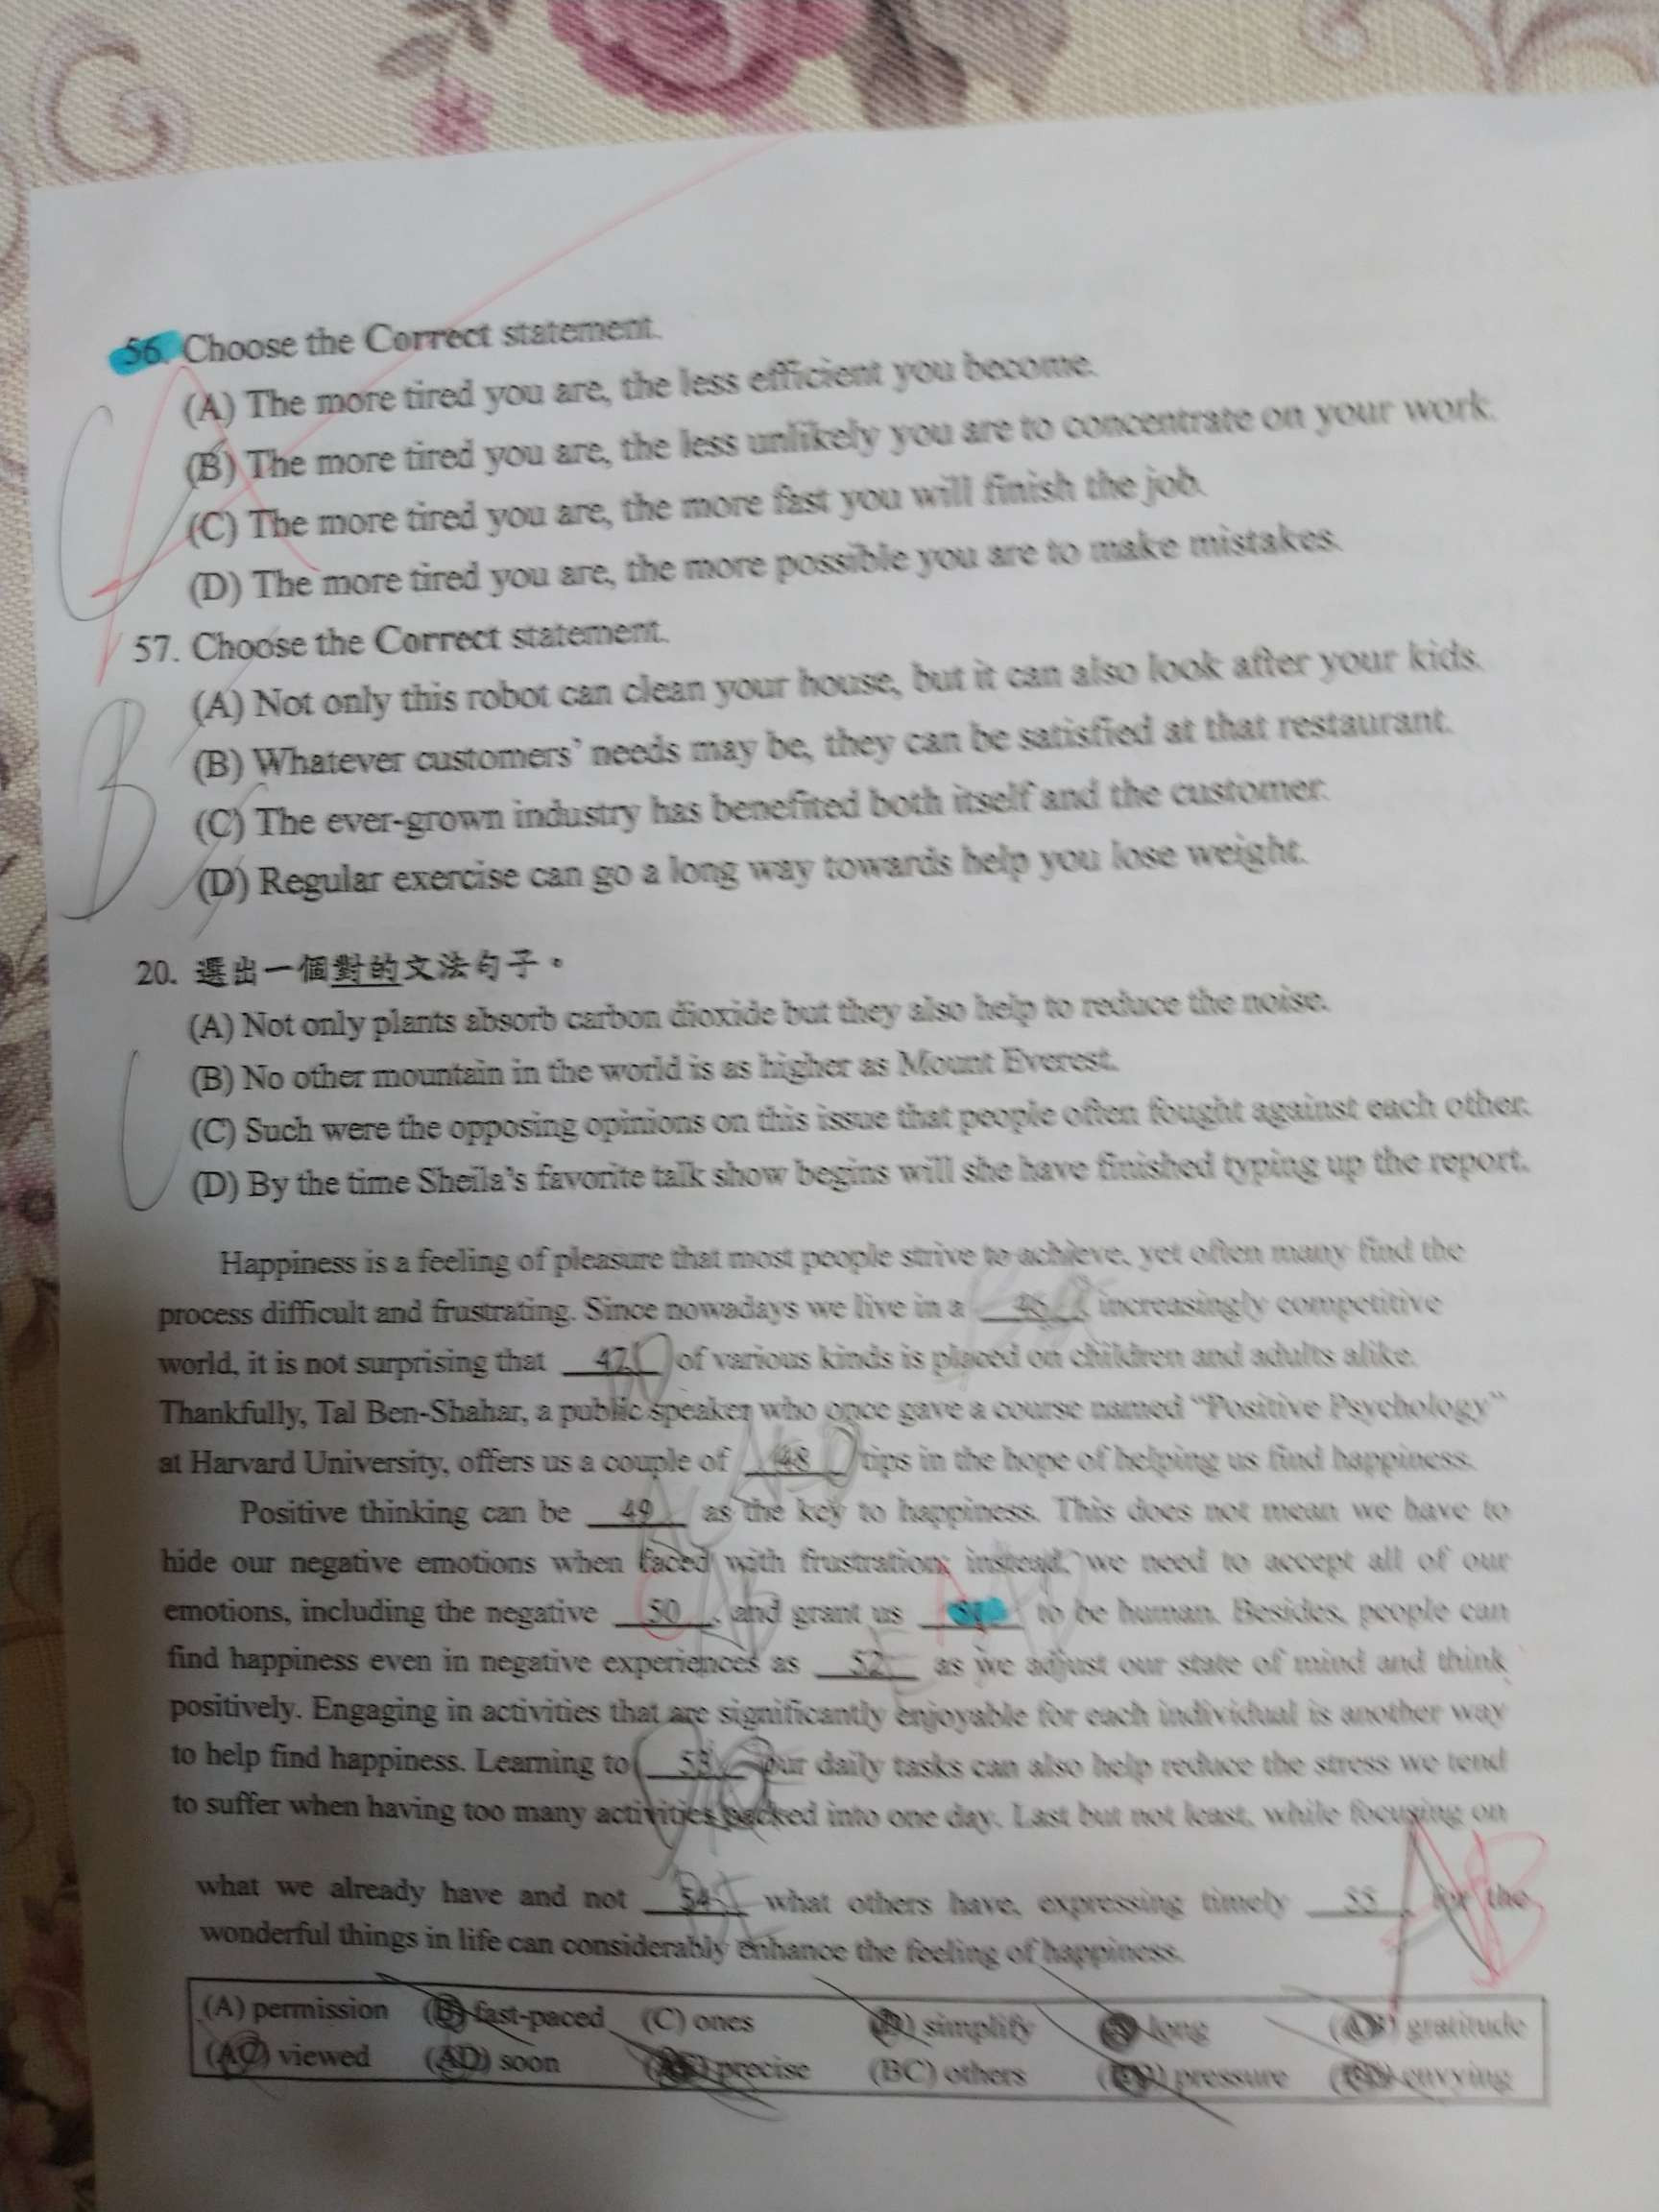 56. Choose the Correct statement.
(A) The more tired you are, the less efficient you become.
(B) The more tired you are, the less unlikely you are to concentrate on your work.
(C) The more tired you are, the more fast you will finish the job.
(D) The more tired you are, the more possible you are to make mistakes.
57. Choose the Correct statement.
(A) Not only this robot can clean your house, but it can also look after your kids.
(B) Whatever customers' needs may be, they can be satisfied at that restaurant.
(C) The ever-grown industry has benefited both itself and the customer.
(D) Regular exercise can go a long way towards help you lose weight.
B
20. 選出一個對的文法句子。
(A) Not only plants absorb carbon dioxide but they also help to reduce the noise.
(B) No other mountain in the world is as higher as Mount Everest.
(C) Such were the opposing opinions on this issue that people often fought against each other.
(D) By the time Sheila's favorite talk show begins will she have finished typing up the report.
C
Happiness is a feeling of pleasure that most people strive to achieve, yet often many find the
process difficult and frustrating. Since nowadays we live in a 46 , increasingly competitive
world, it is not surprising that 47 of various kinds is placed on children and adults alike.
Thankfully, Tal Ben-Shahar, a public speaker who once gave a course named "Positive Psychology"
at Harvard University, offers us a couple of 48 tips in the hope of helping us find happiness.
Positive thinking can be 49 as the key to happiness. This does not mean we have to
hide our negative emotions when faced with frustration; instead, we need to accept all of our
emotions, including the negative 50 , and grant us 51 to be human. Besides, people can
find happiness even in negative experiences as 52 as we adjust our state of mind and think
positively. Engaging in activities that are significantly enjoyable for each individual is another way
to help find happiness. Learning to 53 our daily tasks can also help reduce the stress we tend
to suffer when having too many activities packed into one day. Last but not least, while focusing on
what we already have and not 54 what others have, expressing timely 55 for the
AB
wonderful things in life can considerably enhance the feeling of happiness.
(A) permission (B) fast-paced (C) ones (D) simplify long (AB) gratitude
(AC) viewed (AD) soon precise (BC) others pressure envying